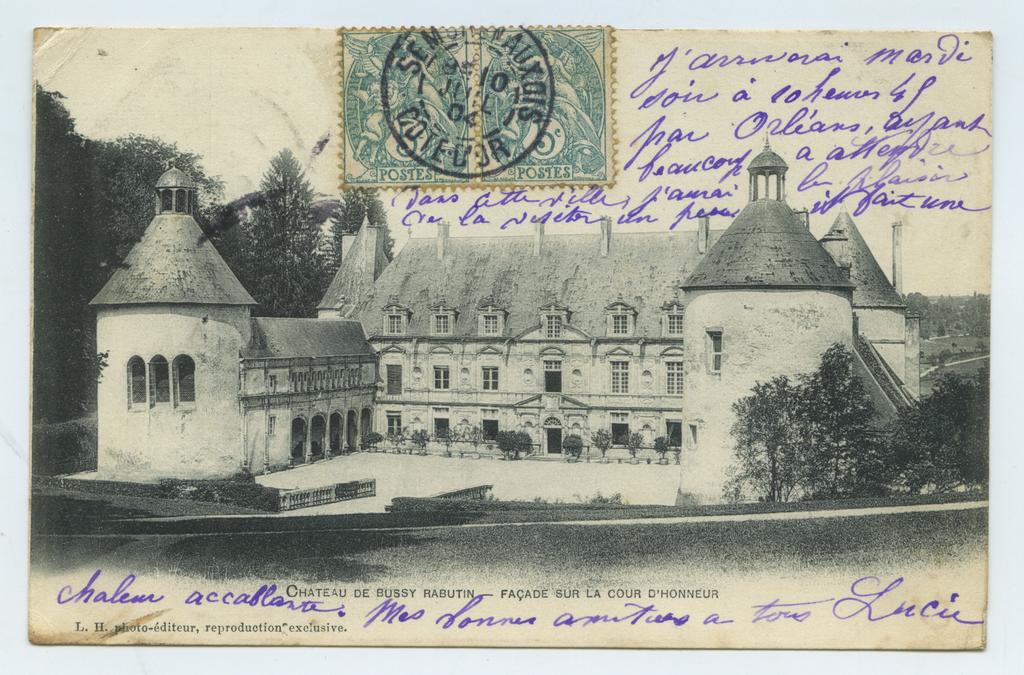 SEMUR-EN-AUXOIS
10
1
JUIL
04
COTE-D'OR
POSTES
POSTES
5
j'arriverai mardi
soir à 10 heures 45
par Orléans, ayant
beaucoup a attendre
dans cette ville, j'aurai le plaisir
de la visiter un peu, il fait une
chaleur accablante. Mes bonnes amitiés a tous Lucie
CHATEAU DE BUSSY RABUTIN — FAÇADE SUR LA COUR D'HONNEUR
L. H. photo-éditeur, reproduction exclusive.